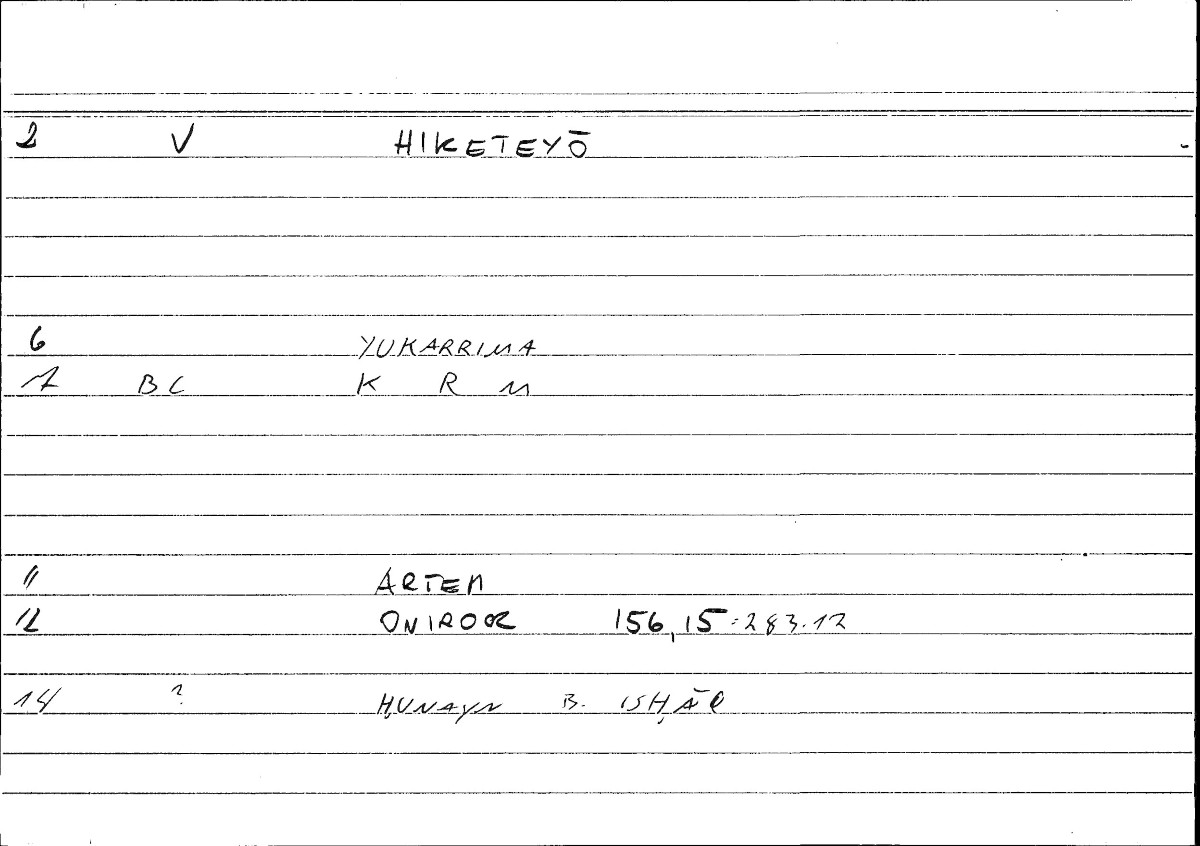 2 V HIKETEYŌ
6 YUKARRIMA
7 BC K R M
11 ARTEM
12 ONIROCR 156,15:283.12
14 ? ḤUNAYN B. ISḤĀQ